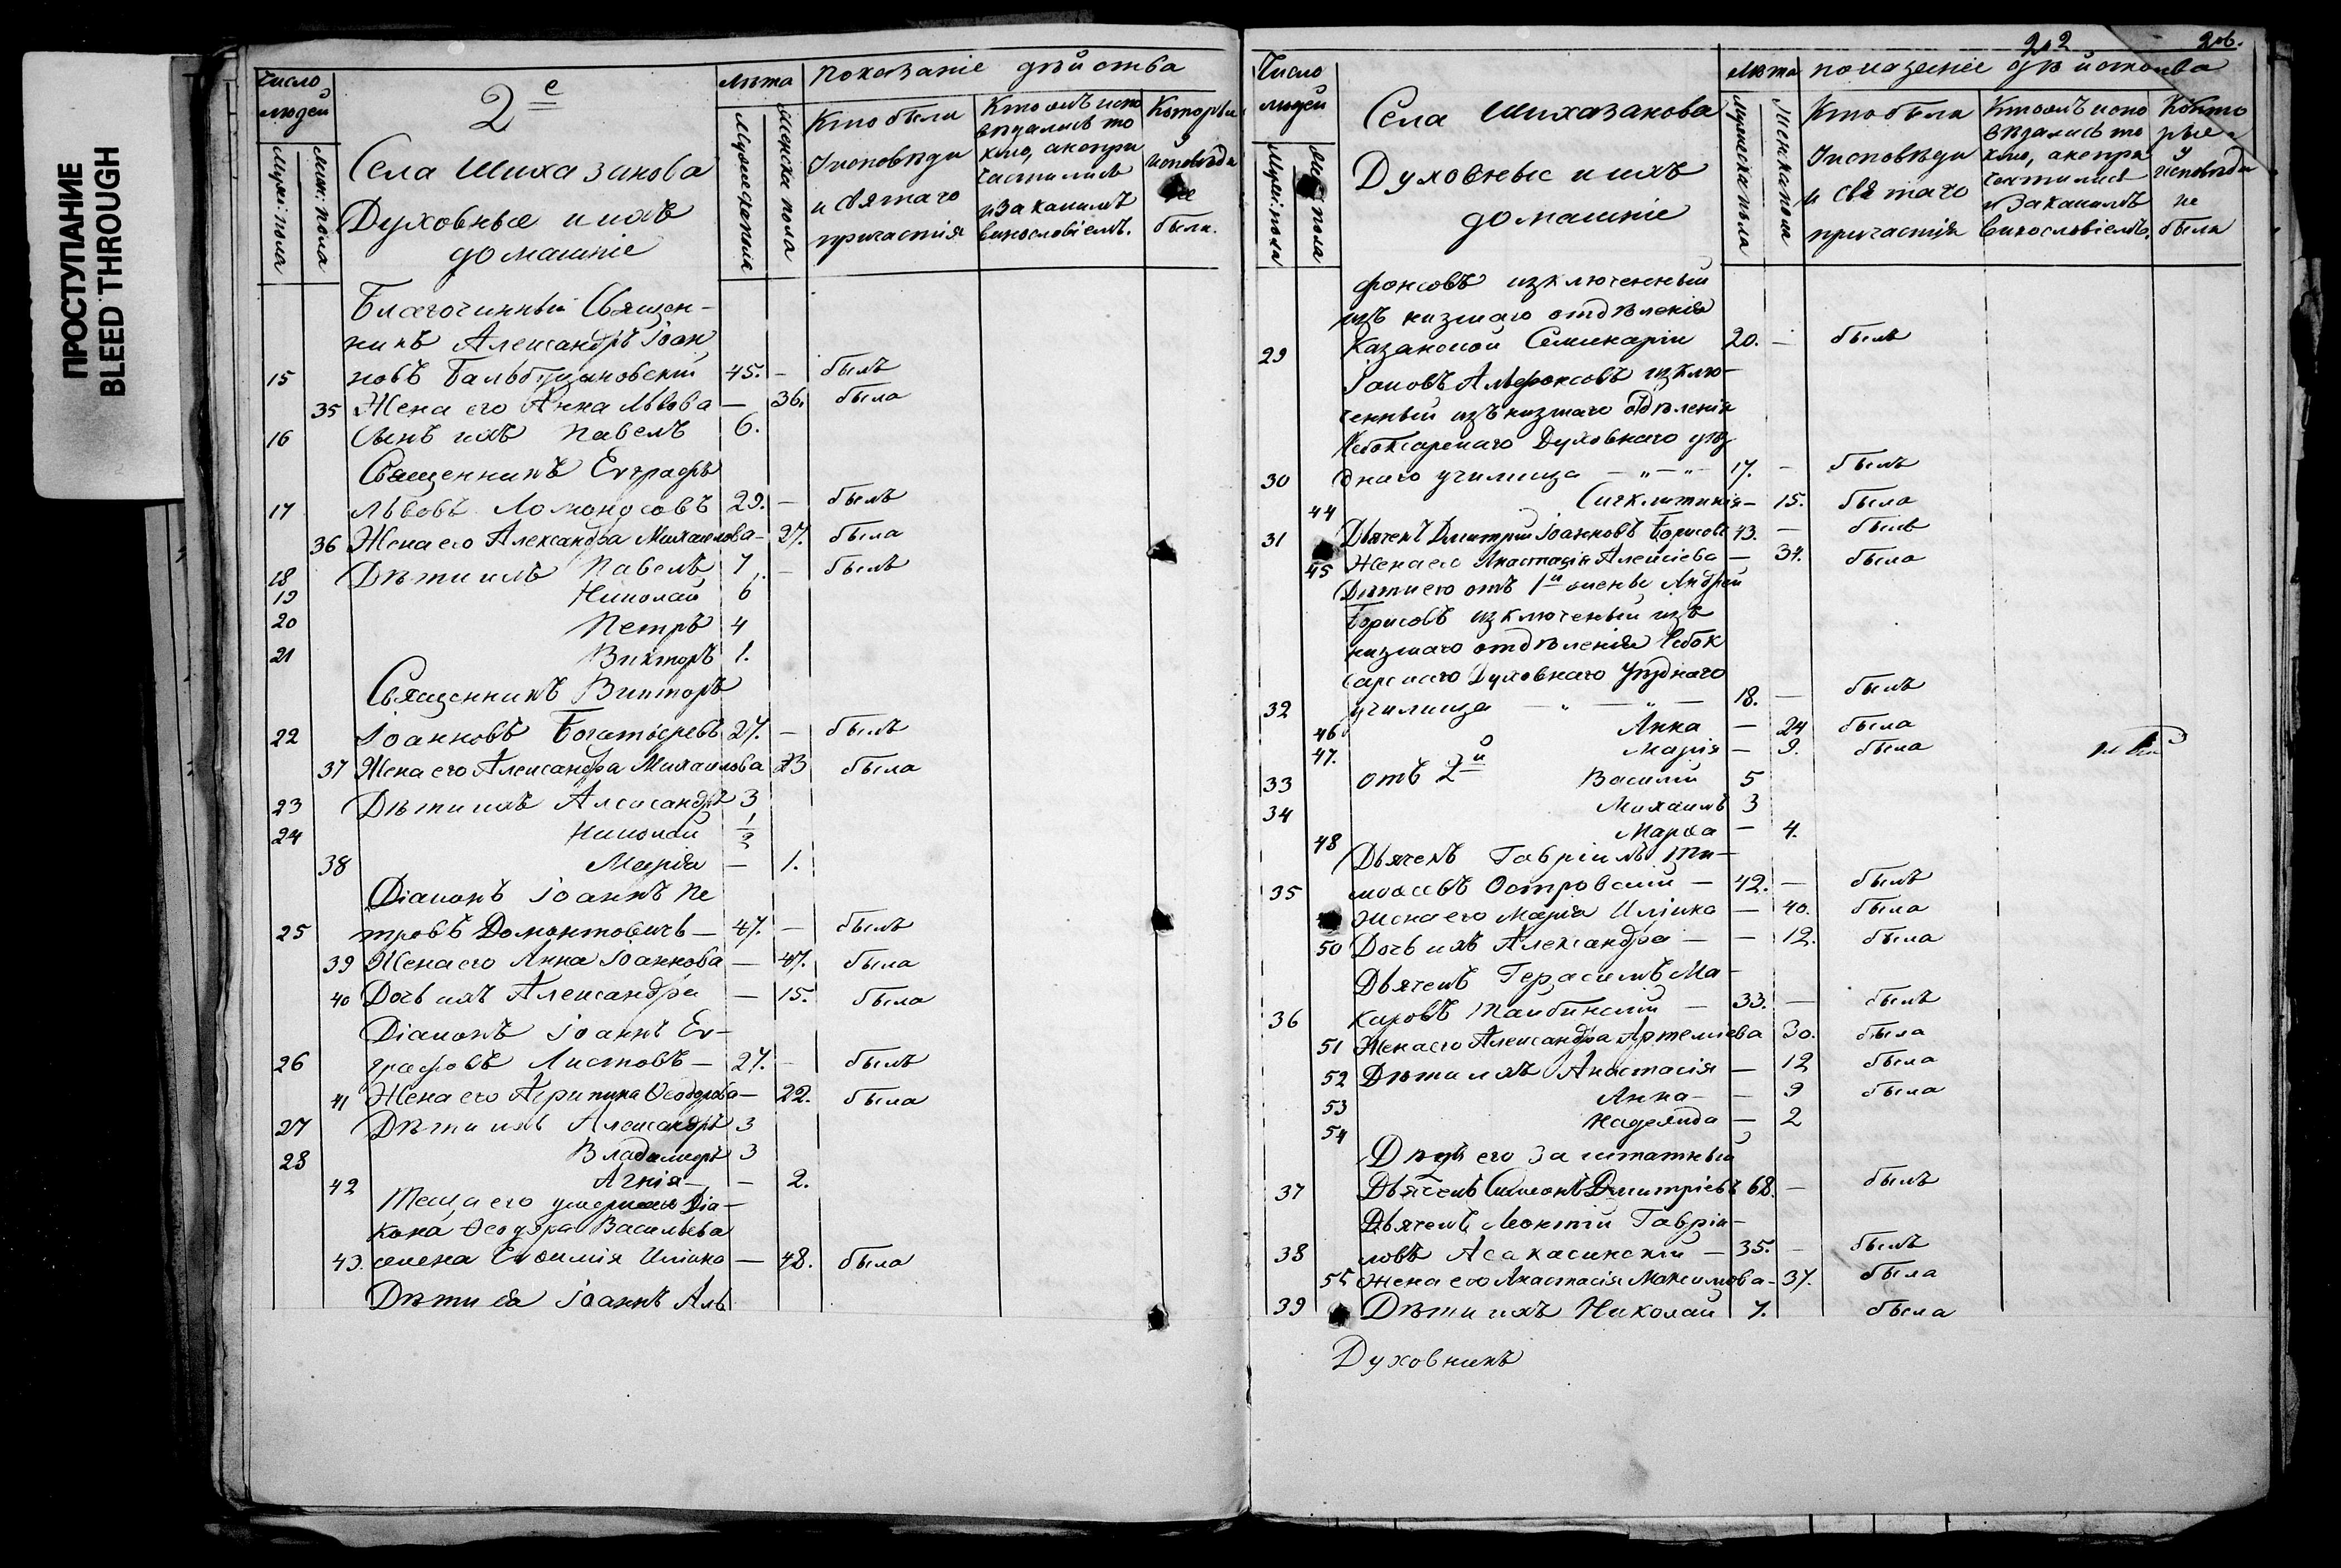 ПРОСТУПАНИЕ
BLEED THROUGH
Число людей
Муж: пола
Жен: пола
2е
Села Шихазанова
Духовные и ихъ
домашніе
Лѣта
Мужеска пола
Женска пола
Показаніе дѣйства
Кто были Исповѣди и святаго причастія
Кто отъ испо вѣдались то кмо, а не при частились и за какимъ винословіемъ.
Которые исповѣди не были.
Благочинный Священ-
никъ Александръ Іоан
15 новъ Бальбуциновскій 45. — былъ
35 Жена его Анна Львова — 36. была
16 Сынъ ихъ Павелъ 6.
Священникъ Евграфъ
17 Львовъ Ломоносовъ 29. — былъ
36 Жена его Александра Михаилова — 27. была
18 Дѣти ихъ Павелъ 7 — былъ
19 Николай 6
20 Петръ 4
21 Викторъ 1.
Священникъ Викторъ
22 Іоанновъ Богатыревъ 27. — былъ
37 Жена его Александра Михаилова 23 была
23 Дѣти ихъ Александръ 3
24 Николай 1/2
38 Марія — 1.
Діаконъ Іоаннъ Пе
25 тровъ Домонтовичъ — 47. — былъ
39 Жена его Анна Іоаннова — 47. была
40 Дочь ихъ Александра — 15. была
Діаконъ Іоаннъ Ев-
26 графовъ Листовъ — 27. — былъ
41 Жена его Агрипина Ѳеодорова — 22. была
27 Дѣти ихъ Александръ 3
28 Владимеръ 3
42 Агнія — — 2.
Теща его умершаго Діа-
кона Ѳеодора Васильева
43. жена Евѳимія Иліина — 48. была
Дѣти ея Іоаннъ Аль
202
Число людей
Муж: пола
пола
Села Шихазанова
Духовные и ихъ
домашніе
Лѣта
Мужеска пола
Женска пола
показаніе дѣйства
Кто были Исповѣди и святаго причастія
Кто отъ испо вѣдались то кмо, а не при частились и за какимъ винословіемъ.
Кото рые у исповѣди не были
фонсовъ изключенный
изъ низшаго отдѣленія
29 Казанской Семинаріи 20. — былъ
Іаковъ Альфонсовъ изклю-
ченный изъ низшаго отдѣленія
Чебоксарскаго Духовнаго уѣз
30 днаго училища — „ — „ — 17. — былъ
44 Сигклитикія — 15. была
31 Дьячекъ Дмитрій Іоанновъ Борисовъ 43. — былъ
45 Жена его Анастасія Алексіева — 34. была
Дѣти его отъ 1й жены Андрей
Борисовъ изключеный изъ
низшаго отдѣленія Чебок
сарскаго Духовнаго Уѣзднаго
32 училища — „ — „ — 18. — былъ
46 Анна — 24 была
47. Марія — 9. была
33 отъ 2й Василій 5
34 Михаилъ 3
48 Марѳа — 4.
Дьячекъ Гавріилъ Ти-
35 моѳеевъ Островскій — 42. — былъ
Жена его Марія Иліина — 40. была
50 Дочь ихъ Александра — — 12. была
Дьячекъ Герасимъ Ма-
36 каровъ Таибинскій — 33. — былъ
51 Жена его Александра Артеміева 30. была
52 Дѣти ихъ Анастасія — 12 была
53 Анна — — 9 была
54 Надежда — 2
Дѣдъ его Заштатный
37 Дьячекъ Симеонъ Дмитріевъ 68. — былъ
Дьячекъ Леонтій Гавріи-
38 ловъ Асакасинскій — 35. — былъ
55 Жена его Анастасія Максимова — 37. была
39 Дѣти ихъ Николай 7. была
Духовникъ